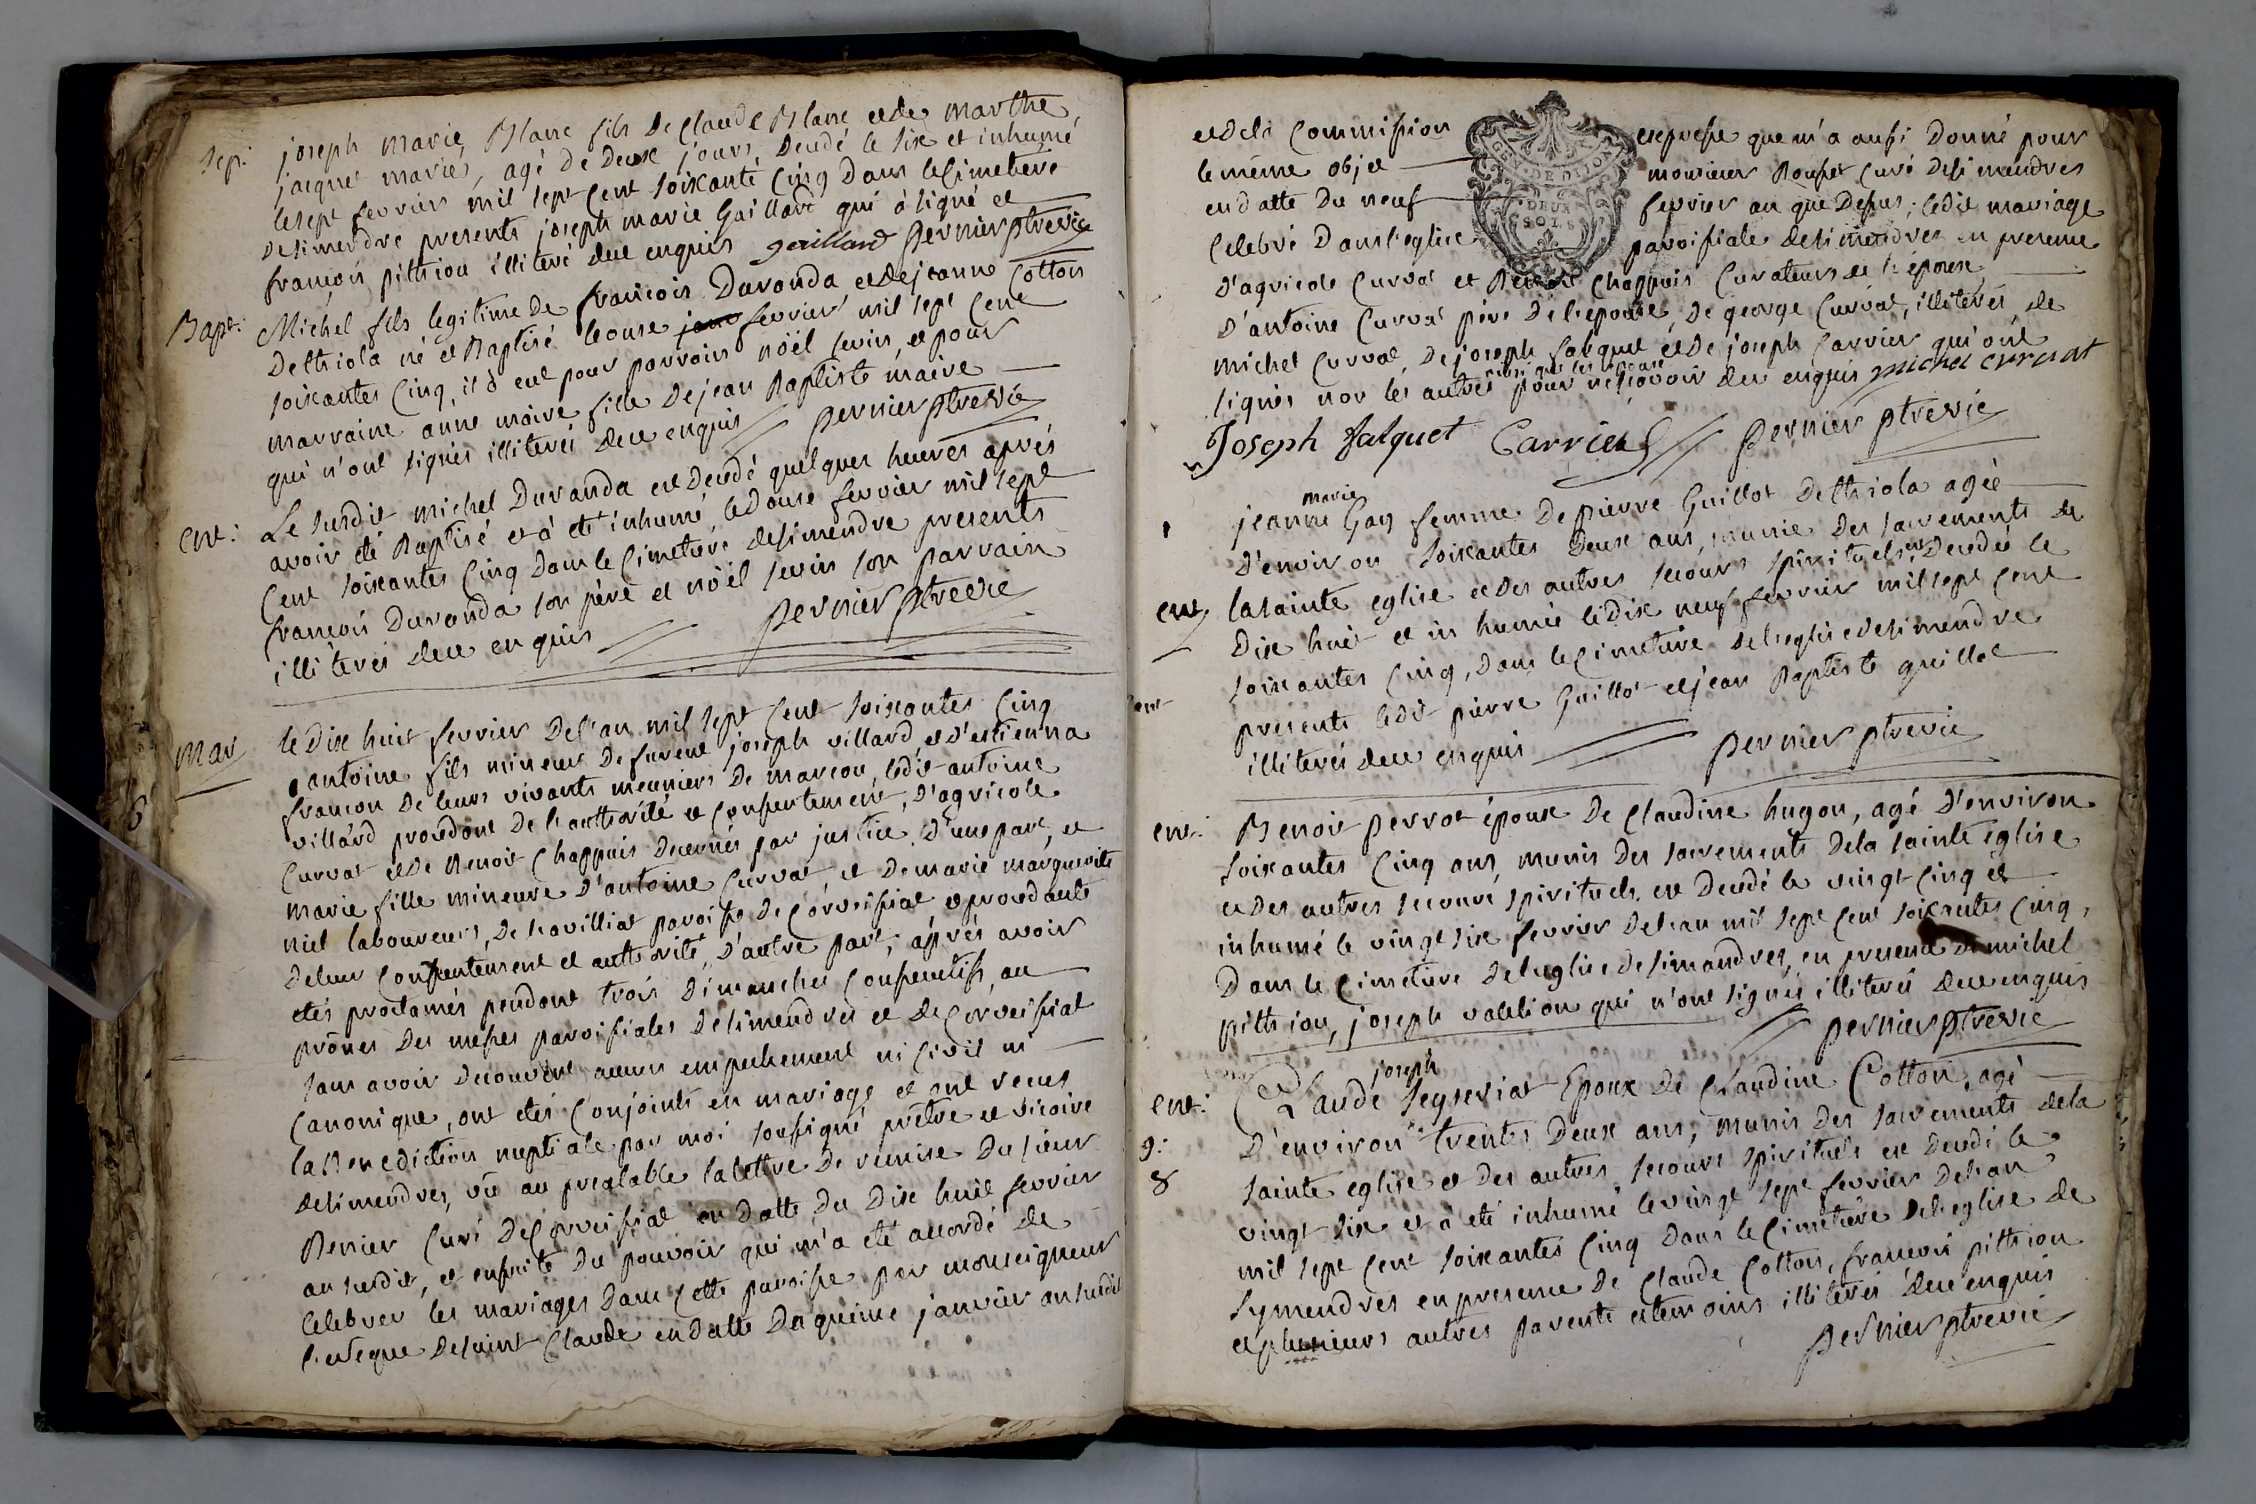 sep: joseph marie Blanc fils de Claude Blanc et de marthe
jacquet mariés, agé de deux jours, decedé le six et inhumé
le sept fevrier mil sept cent soixante cinq dans le cimetiere
de simendre presents joseph marie Gaillard qui à signé et
françois pithiou illiteré de ce enquis gaillard pernier ptre vic
Bapt: Michel fils legitime de françois Duranda et de jeanne Cotton
de thiola né et Baptisé le onze fevrier mil sept cent
soixantes cinq, il à eut pour parrain nöel sevin, et pour
marraine anne maire fille de jean Baptiste maire
qui n'ont signés illiterés de ce enquis pernier ptre vic
ent: Le susdit michel Duranda est decedé quelques heures aprés
avoir eté Baptisé et à eté inhumé, le douze fevrier mil sept
cent soixantes cinq dans le cimetiere de simendre presents
françois Duranda son pére et nöel sevin son parrain
illiterés de ce enquis pernier ptre vic
mar le dix huit fevrier de l'an mil sept cent soixantes cinq
antoine fils mineur de furent joseph villard, et d'estienna
francon de leurs vivants meuniers de marcou, ledit antoine
villard procedant de l'authorité et consentement, d'agricole
Curvat et de Benoit Chappuis decernés par justice d'une part, et
marie fille mineure d'antoine Curvat et de marie marguerite
niel laboureurs, de havilliat paroisse de Corveissiat et procedante
de leur consentement et authorité, d'autre part, aprés avoir
etés proclamés pendant trois dimanches consecutifs, au
prônes des messes paroissiales de simendres et de Corveissiat
sans avoir decouvert aucun empechement ni civil ni
canonique, ont etés conjoints en mariage et ont reçus
la Benediction nuptiale par moi soussigné prêtre et vicaire
de simendres, vû au prealable la lettre de remise du sieur
Benier Curé de Corveissiat en datte du dix huit fevrier
an susdit, et ensuite du pouvoir qui m'a eté accordé de
celebrer les mariages dans cette paroisse par monseigneur
l'evêque de saint Claude en datte du quinze janvier an susdit
et de la Commission expresse que m'a aussi donné pour
le même objet monsieur Rousset Curé de simendres
en datte du neuf fevrier an que dessus; ledit mariage
celebré dans l'eglise paroissiale de simendres en presence
GEN. DE DIJON
DEUX
SOLS
d'agricole Curvat et Benoit Chappuis Curateurs de l'epoux
d'antoine Curvat pére de l'epouse, de george Curvat, illiterés, de
michel Curvat, de joseph falquet et de joseph Carrier qui ont
signés non les autres pour ne sçavoir de ce enquis michel curvat
Joseph falquet Carrier pernier ptre vic
marie
jeanne Gay femme de pierre Guillot de thiola agée
d'environ soixantes deux ans, munie des sacrements de
ent la sainte eglise et des autres secours spirituels est decedée le
dix huit et inhumée le dix neuf fevrier mil sept cent
soixantes cinq, dans le cimetiere de l'eglise de simendre
presents ledit pierre Guillot et jean Baptiste guillot
illiterés de ce enquis pernier ptre vic
ent: Benoit perrot époux de Claudine hugon, agé d'environ
soixantes cinq ans, munis des sacrements de la sainte église
et des autres secours spirituels est decedé le vingt cinq et
inhumé le vingt six fevrier de l'an mil sept cent soixantes cinq,
dans le cimetiere de l'eglise de simandres, en presence de michel
pithiou, joseph valetion qui n'ont signés illiterés de ce enquis
pernier ptre vic
joseph
ent: Claude seyseriat Epoux de Claudine Cotton, agé
g: d'environ trentes deux ans, munis des sacrements de la
8 sainte eglise et des autres secours spirituels est decedé le
vingt six et à eté inhumé le vingt sept fevrier de l'an
mil sept cent soixantes cinq dans le cimetiere de l'eglise de
symendres en presence de Claude Cotton, françois pithiou
et plusieurs autres parents et temoins illiterés de ce enquis
pernier ptre vic